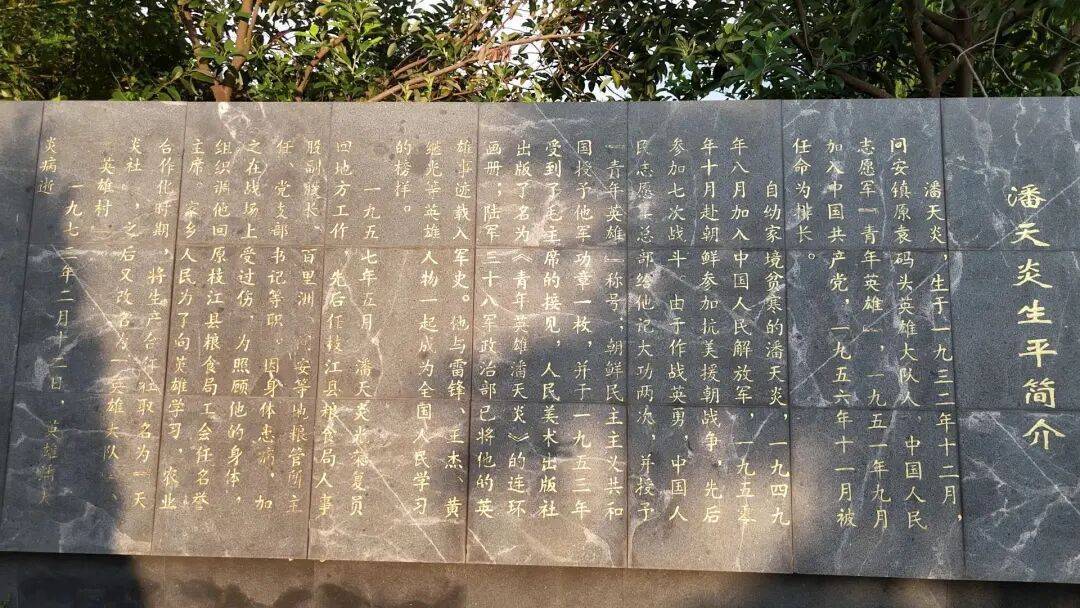 潘天炎生平简介
潘天炎，生于一九三二年十二月，
问安镇原袁码头英雄大队人，中国人民
志愿军『青年英雄』，一九五一年九月
加入中国共产党，一九五六年十一月被
任命为排长。
自幼家境贫寒的潘天炎，一九四九
年八月加入中国人民解放军，一九五零
年十月赴朝鲜参加抗美援朝战争，先后
参加七次战斗。由于作战英勇，中国人
民志愿军总部给他记大功两次，并授予
『青年英雄』称号，朝鲜民主主义共和
国授予他军功章一枚，并于一九五三年
受到了毛主席的接见，人民美术出版社
出版了名为《青年英雄潘天炎》的连环
画册；陆军三十八军政治部已将他的英
雄事迹载入军史。他与雷锋、王杰、黄
继光等英雄人物一起成为全国人民学习
的榜样。
一九五七年五月，潘天炎光荣复员
回地方工作，先后任枝江县粮食局人事
股副股长、百里洲、问安等地粮管所主
任、党支部书记等职。因身体患病，加
之在战场上受过伤，为照顾他的身体，
组织调他回原枝江县粮食局工会任名誉
主席。家乡人民为了向英雄学习，农业
合作化时期，将生产合作社取名为『天
炎社』，之后又改名为『英雄大队』、
『英雄村』。
一九七三年二月十二日，英雄潘天
炎病逝